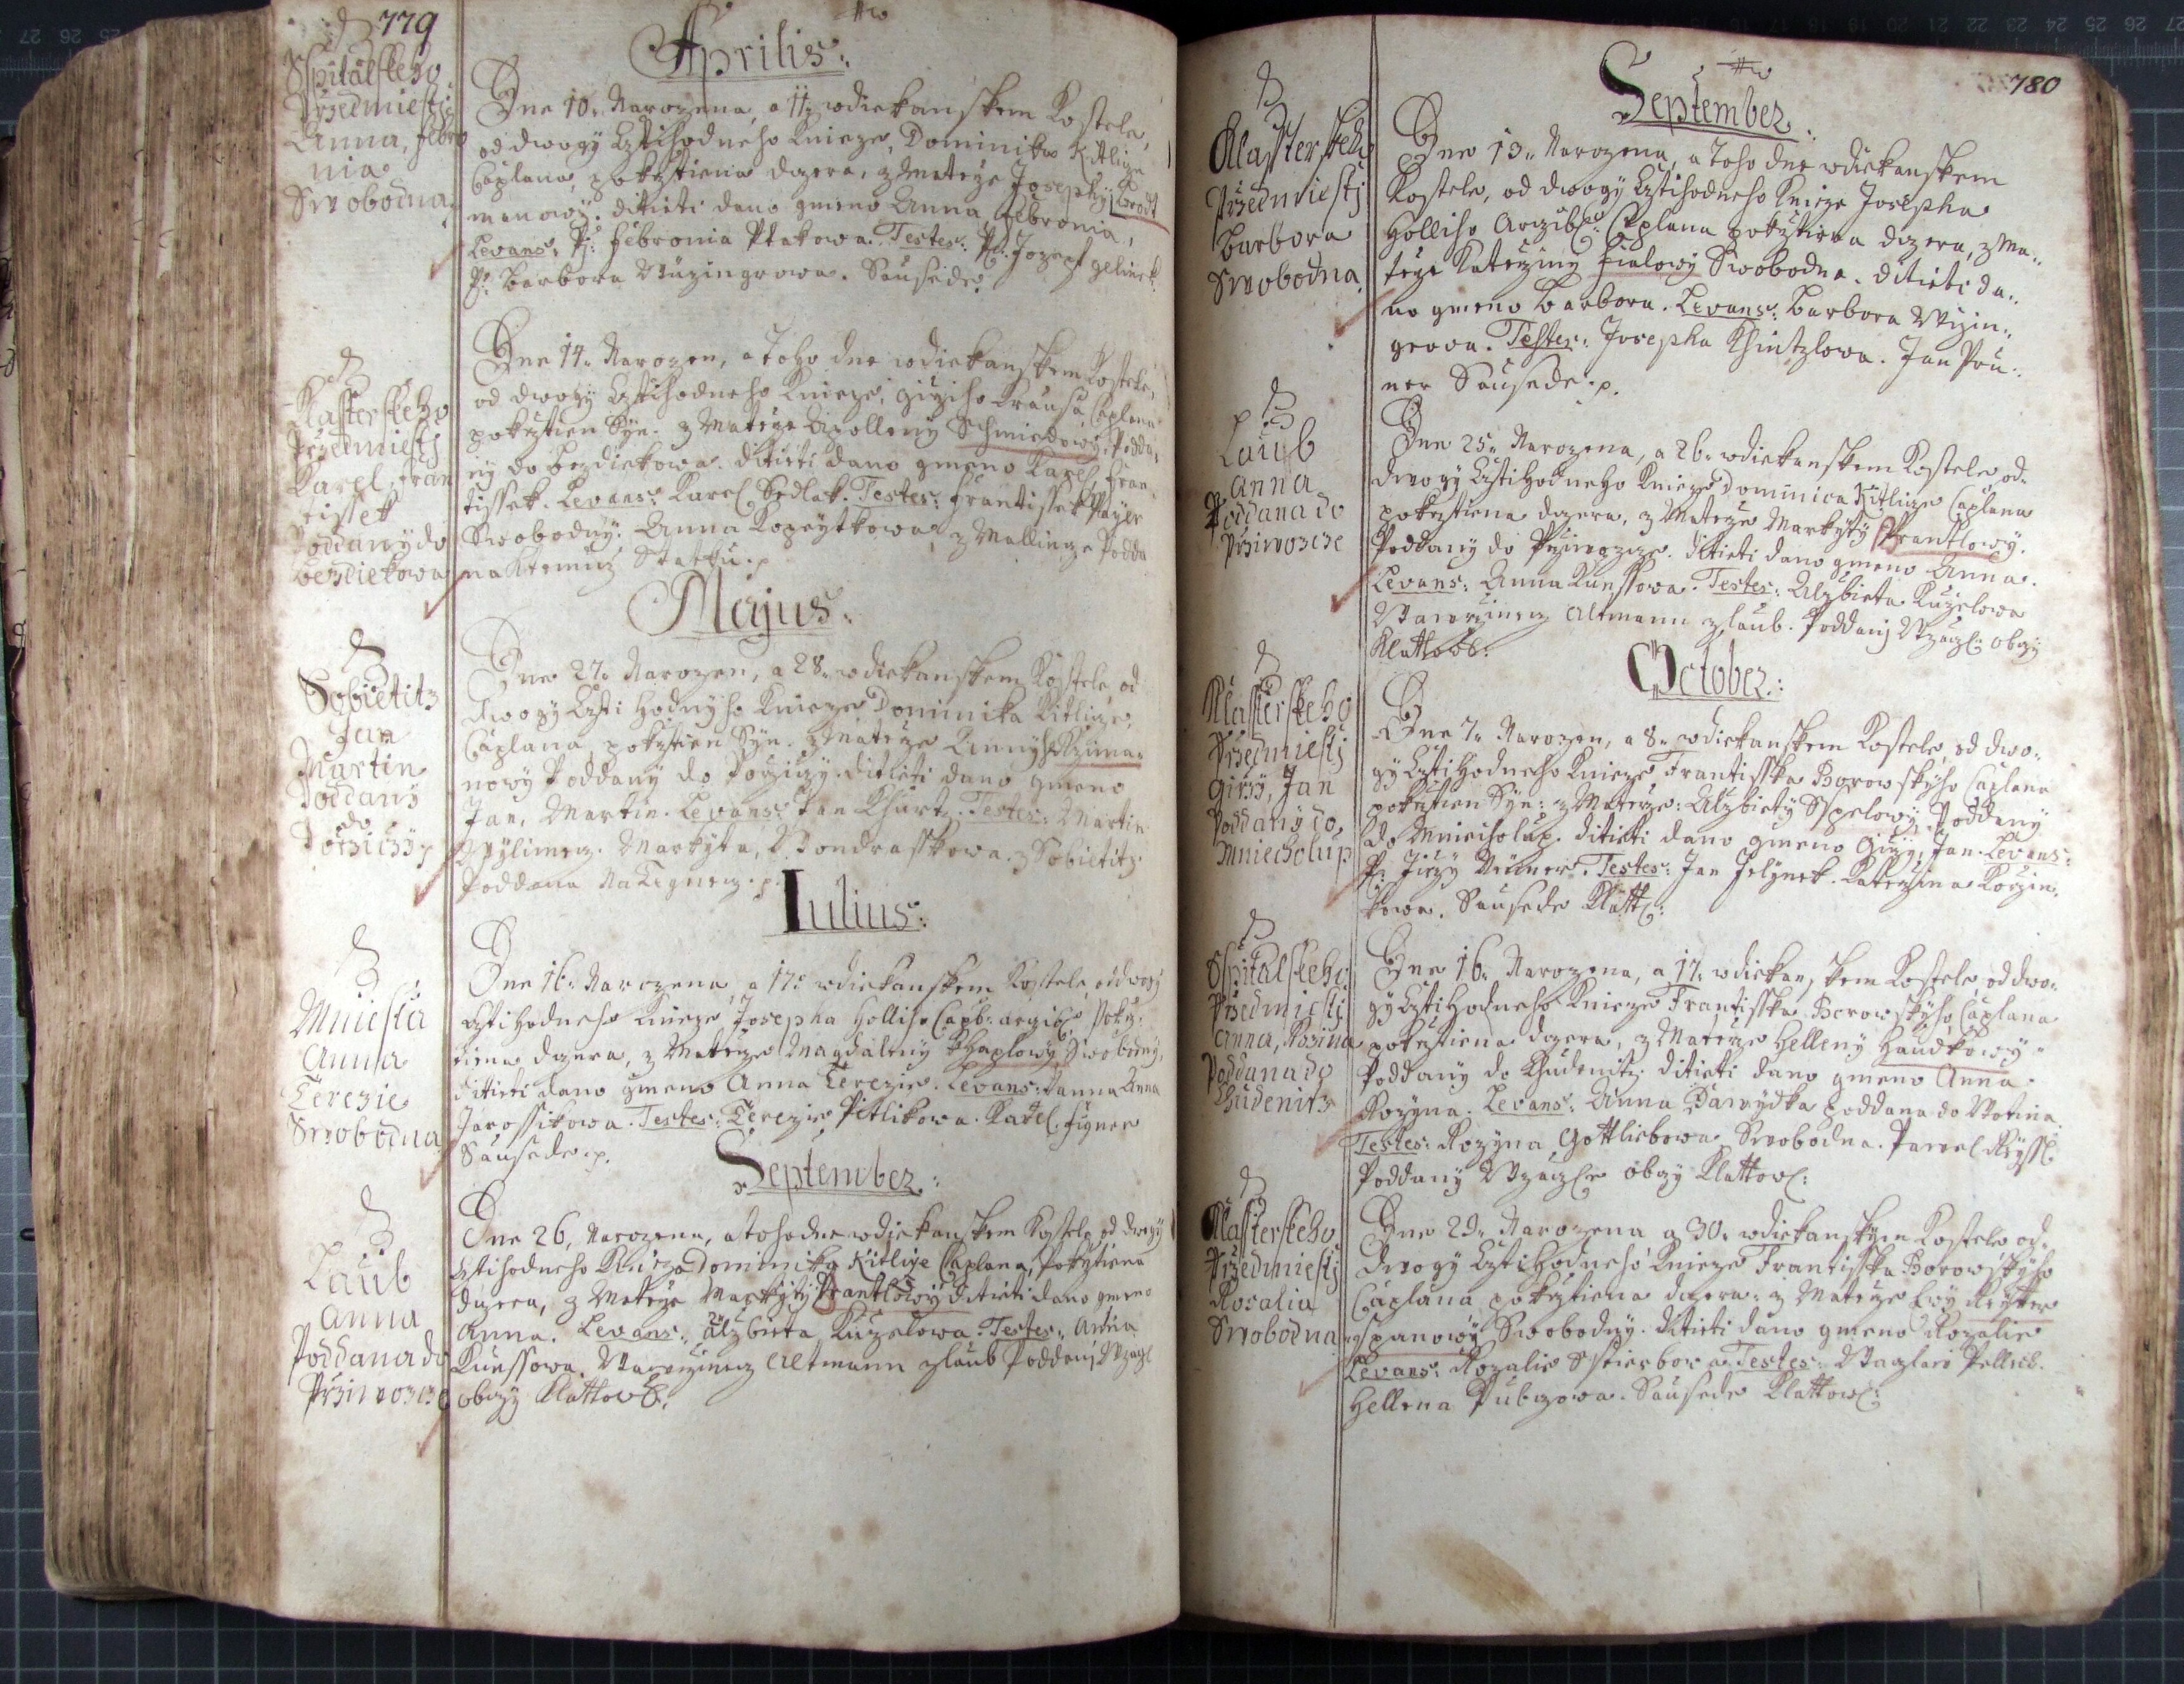 779
Aprilis:
Spitalskeho
Przedmiesti
Anna, Febro
nia
Swobodna
Dne 10. Narozena, a 11. wdiekanskem Kostele,
od dwogy Cztihodneho Knieze, Dominika Kitlize
Caplana, pokrztiena dczera, z Mateze Josephy Brodt
manowy. ditieti dano gmeno Anna Febronia,
Levans: Pj: Febronia Ptakowa. Testes: Pan Jozeff gelinek
Pj: Barbora Wuzingrowa. Sausede.
Klasterskeho
Przedmiesti
Karel, Fran
tissek
Poddany do
Bezdiekowa
Dne 14. Narozen, a Toho dne wdiekanskem Kostele,
od dwogy Cztihodneho Knieze, Girziho Krausa Caplana
pokrztien Syn. z Mateze Apolleny Schmiedowy, Podda,
ny do Bezdiekowa. ditieti dano gmeno Karel, Fran,
tissek. Levans: Karel Sedlak. Testes: Frantissek Payer
Swobodny. Anna Kopeytkowa, z Mallinze Podda
na Ktemuz Stattku. p.
Majus:
Sobietitz
Jan
Martin
Poddany
do
Porziczy
Dne 27. Narozen, a 28. wdiekanskem Kostele, od
dwogy Czti hodnyho Knieze Dominika Kitlize,
Caplana pokrztien Syn. z Mateze Anny Krzima,
nowy Poddany do Porziczy. ditieti dano gmeno
Jan, Martin. Levans: Jan Churt. Testes: Martin
Wylimez. Markyta, Wondrasskowa. z Sobietitz
Poddana Na Teynez. p.
Iulius:
Mniesta
Anna
Terezie
Swobodna
Dne 16. Narozena, a 17. wdiekanskem Kostele, od dwogy
Cztihodneho Knieze Josepha Holliho Capl: arzib: Pokrz,
tiena dczera, z Mateze Magdaleny Chaplowy Swobodny,
ditieti dano gmeno Anna Terezie. Levans: Panna Anna
Jarossikowa. Testes: Terezie Pitlikowa. Karel figner
Sausede. p.
September:
Laub
Anna
Poddana do
Przivozcze
Dne 26, Narozena, a toho dne wdiekanskem Kostele od dwogy
Cztihodneho Knieze Dominika Kitlize Caplana, Pokrztiena
dczera, z Mateze Markyty Brantlowy ditieti dano gmeno
Anna. Levans: Alzbieta Kuzelowa. Testes: Anna
Kunssowa. Wawrzinez Altmann z laub Poddany Wzazl
obczy Klattow.
780
September
Klasterskeho
Przedmiesti
Barbora
Swobodna
Dne 13. Narozena, a Toho dne wdiekanskem
Kostele, od dwogy Cztihodneho Knieze Josepha
Holliho Arzib: Caplana pokrztiena dczera, z Ma,
teze Katerziny Fialowy Swobodna. ditieti da,
no gmeno Barbora. Levans: Barbora Wizin,
growa. Testes: Josepha Chintzlowa. Jan Pru,
ner Sausede. p.
Laub
Anna
Poddana do
Przivozcze
Dne 25. Narozena, a 26. wdiekanskem Kostele, od,
dwogy Cztihodneho Knieze Dominica Kitlize Caplana
pokrztiena dczera, z Mateze Markyty Brantlowy.
Poddany do Przivozcze. ditieti dano gmeno Anna.
Levans: Anna Kunssowa. Testes: Alzbieta Kuzelowa
Wawrzinez Altmann z laub. Poddany Wzazl: obczy
Klattow:
October:
Klasterskeho
Przedmiesti
Girzy, Jan
Poddany do
Mniecholup
Dne 7. Narozen, a 8. wdiekanskem Kostele, od dwo,
gy Cztihodneho Knieze Frantisska Borowskyho Caplana
pokrztien Syn: z Mateze: Alzbiety Sspelowy. Poddany
do Mniecholup. ditieti dano gmeno Girzy, Jan. Levans:
P: Jirzy Neuner. Testes: Jan Jelynek. Katerzina Korzin,
kowa. Sausede Klatt:
Spitalskeho
Przedmiesti
Anna, Rosina
Poddana do
Chudenitz
Dne 16. Narozena, a 17. wdiekanskem Kostele, od dwo,
gy Cztihodneho Knieze Frantisska Borowskyho Caplana
pokrztiena dczera, z Mateze Helleny Haudkowy
Poddany do Chudenitz. ditieti dano gmeno Anna
Rozyna. Levans: Anna Dawydka poddana do Wotina.
Testes: Rozyna Gottliebowa Swobodna. Pawel Reyssl
Poddany Wzazle obczy Klattow:
Klasterskeho
Przedmiesti
Rosalia
Swobodna
Dne 29. Narozena a 30. wdiekanskym Kostele od,
dwogy Cztihodneho Knieze Frantisska Borowskyho
Caplana pokrztiena dczera: z Mateze Ewy Reytter
spanowy Swobodny. ditieti dano gmeno Rozalie
Levans: Rozalie Sstierbowa Testes: Waczlaw Pellech.
Hellena Pubczowa. Sausede Klattow: